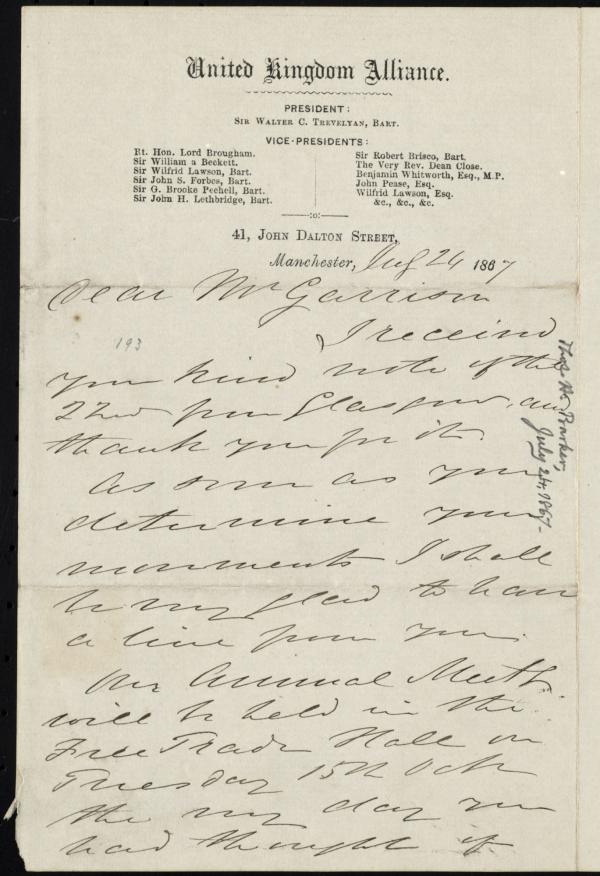 United Kingdom Alliance.
PRESIDENT:
SIR WALTER C. TREVELYAN, BART.
VICE-PRESIDENTS:
Rt. Hon. Lord Brougham.
Sir William a Beckett.
Sir Wilfrid Lawson, Bart.
Sir John S. Forbes, Bart.
Sir G. Brooke Pechell, Bart.
Sir John H. Lethbridge, Bart.
Sir Robert Brisco, Bart.
The Very Rev. Dean Close.
Benjamin Whitworth, Esq., M.P.
John Pease, Esq.
Wilfrid Lawson, Esq.
&c., &c., &c.
41, JOHN DALTON STREET,
Manchester, July 24 1867
Dear Mr Garrison
I received
193
your kind note of the
22nd from Glasgow, and
thank you for it.
As soon as you
determine your
movements I shall
be very glad to have
a line from you.
Our Annual Meetg
will be held in the
Free Trade Hall on
Tuesday 15th Octr
the very day you
had thought of
Thos. H. Barker,
July 24, 1867.